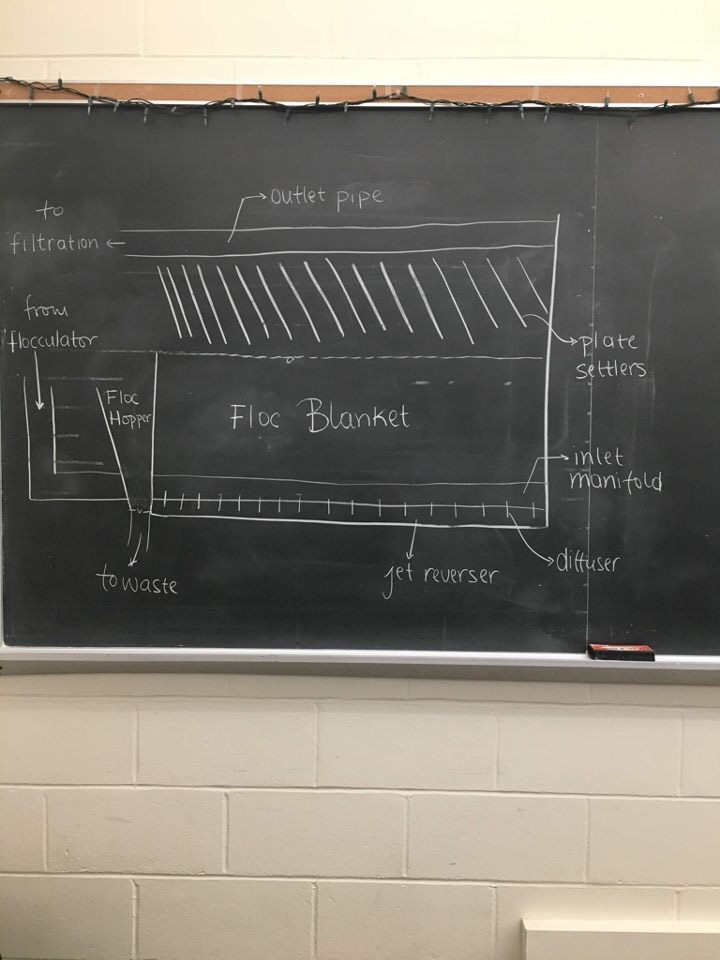 outlet pipe
to
filtration
from
flocculator
plate
settlers
Floc
Hopper
Floc Blanket
inlet
manifold
diffuser
jet reverser
to waste